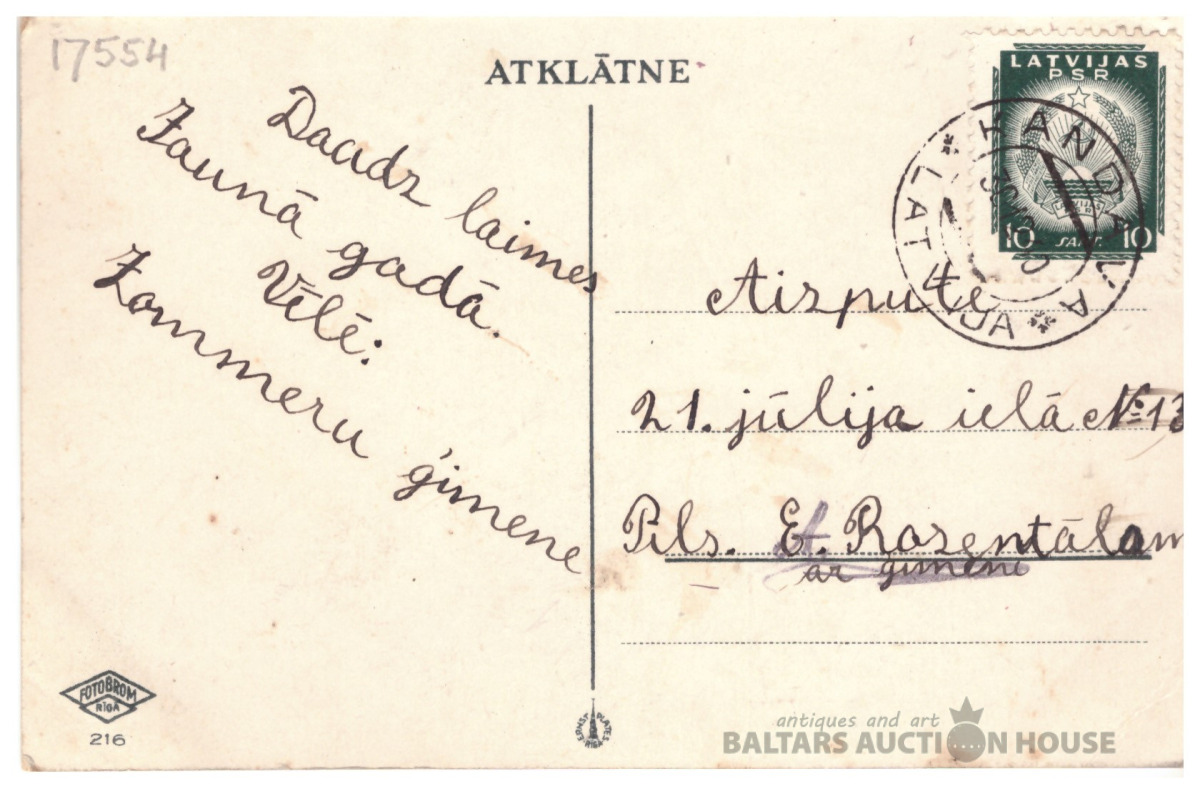 17554
ATKLĀTNE
Daudz laimes
Jaunā gadā.
Vēlē:
Zommeru ģimene
LATVIJAS
PSR
10 SANT. 10
KANDAVA
LATVIJA
Aizpute
21. jūlija ielā №13
Pils. E. Rozentālam
ar ģimeni
FOTOBROM
RĪGA
216
ERNST PLATES
antiques and art
BALTARS AUCTION HOUSE